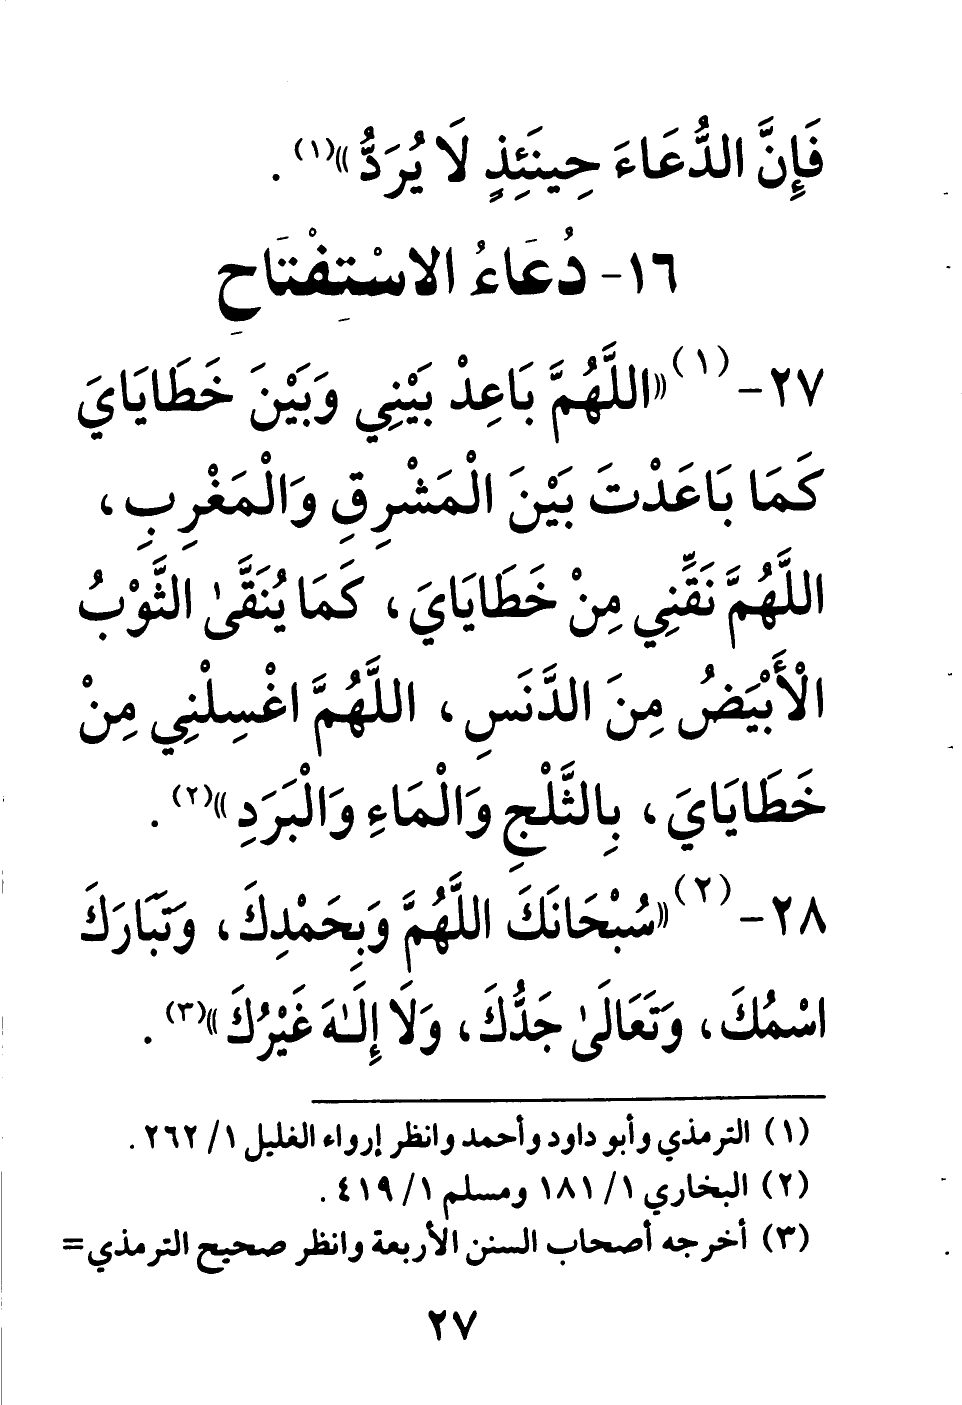 فَإِنَّ الدُّعَاءَ حِينَئِذٍ لَا يُرَدُّ»(١) .
١٦- دُعَاءُ الاسْتِفْتَاحِ
٢٧- (١)«اللَّهُمَّ بَاعِدْ بَيْنِي وَبَيْنَ خَطَايَايَ
كَمَا بَاعَدْتَ بَيْنَ الْمَشْرِقِ وَالْمَغْرِبِ،
اللَّهُمَّ نَقِّنِي مِنْ خَطَايَايَ، كَمَا يُنَقَّىٰ الثَّوْبُ
الْأَبْيَضُ مِنَ الدَّنَسِ، اللَّهُمَّ اغْسِلْنِي مِنْ
خَطَايَايَ، بِالثَّلْجِ وَالْمَاءِ وَالْبَرَدِ»(٢) .
٢٨- (٢)«سُبْحَانَكَ اللَّهُمَّ وَبِحَمْدِكَ، وَتَبَارَكَ
اسْمُكَ، وَتَعَالَىٰ جَدُّكَ، وَلَا إِلَـٰهَ غَيْرُكَ»(٣) .
(١) الترمذي وأبو داود وأحمد وانظر إرواء الغليل ١/ ٢٦٢ .
(٢) البخاري ١/ ١٨١ ومسلم ١/ ٤١٩ .
(٣) أخرجه أصحاب السنن الأربعة وانظر صحيح الترمذي=
٢٧